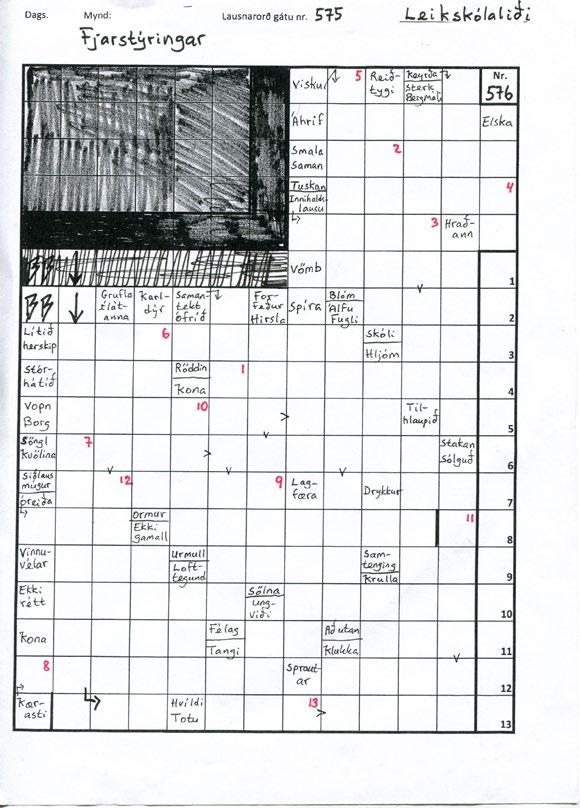 Dags. Mynd: Lausnarorð gátu nr. 575 Leikskólaliði
Fjarstýringar
Visku 5 Reið-
tygi Keyrða
Sterk
Bergmáli Nr.
576
Áhrif Elska
Smala
Saman 2
Tuskan
Innihalds-
lausu 4
3 Hrað-
ann
BB Vömb 1
BB Grufla
Karl-
dýr Saman-
tekt
Ófrið For-
feður
Hirsla Spíra Blóm
Álfu
Fugli 2
Lítið
herskip 6 Skóli
Hljóm 3
Stór-
hátíð Röddin
Kona 1 4
Vopn
Borg 10 Til-
hlaupið 5
Söngl
Kvölina 7 Stakan
Sólguð 6
Siðlaus
múgur
Óreiða 12 9 Lag-
færa Drykkur 7
Ormur
Ekki
gamall 11 8
Vinnu-
vélar Urmull
Loft-
tegund Sam-
tenging
Krulla 9
Ekki
rétt Sólna
Ung-
viði 10
Kona Félag
Tangi Að utan
Klukka 11
8 Sprautar 12
Kær-
asti Hvíldi
Totu 13 13